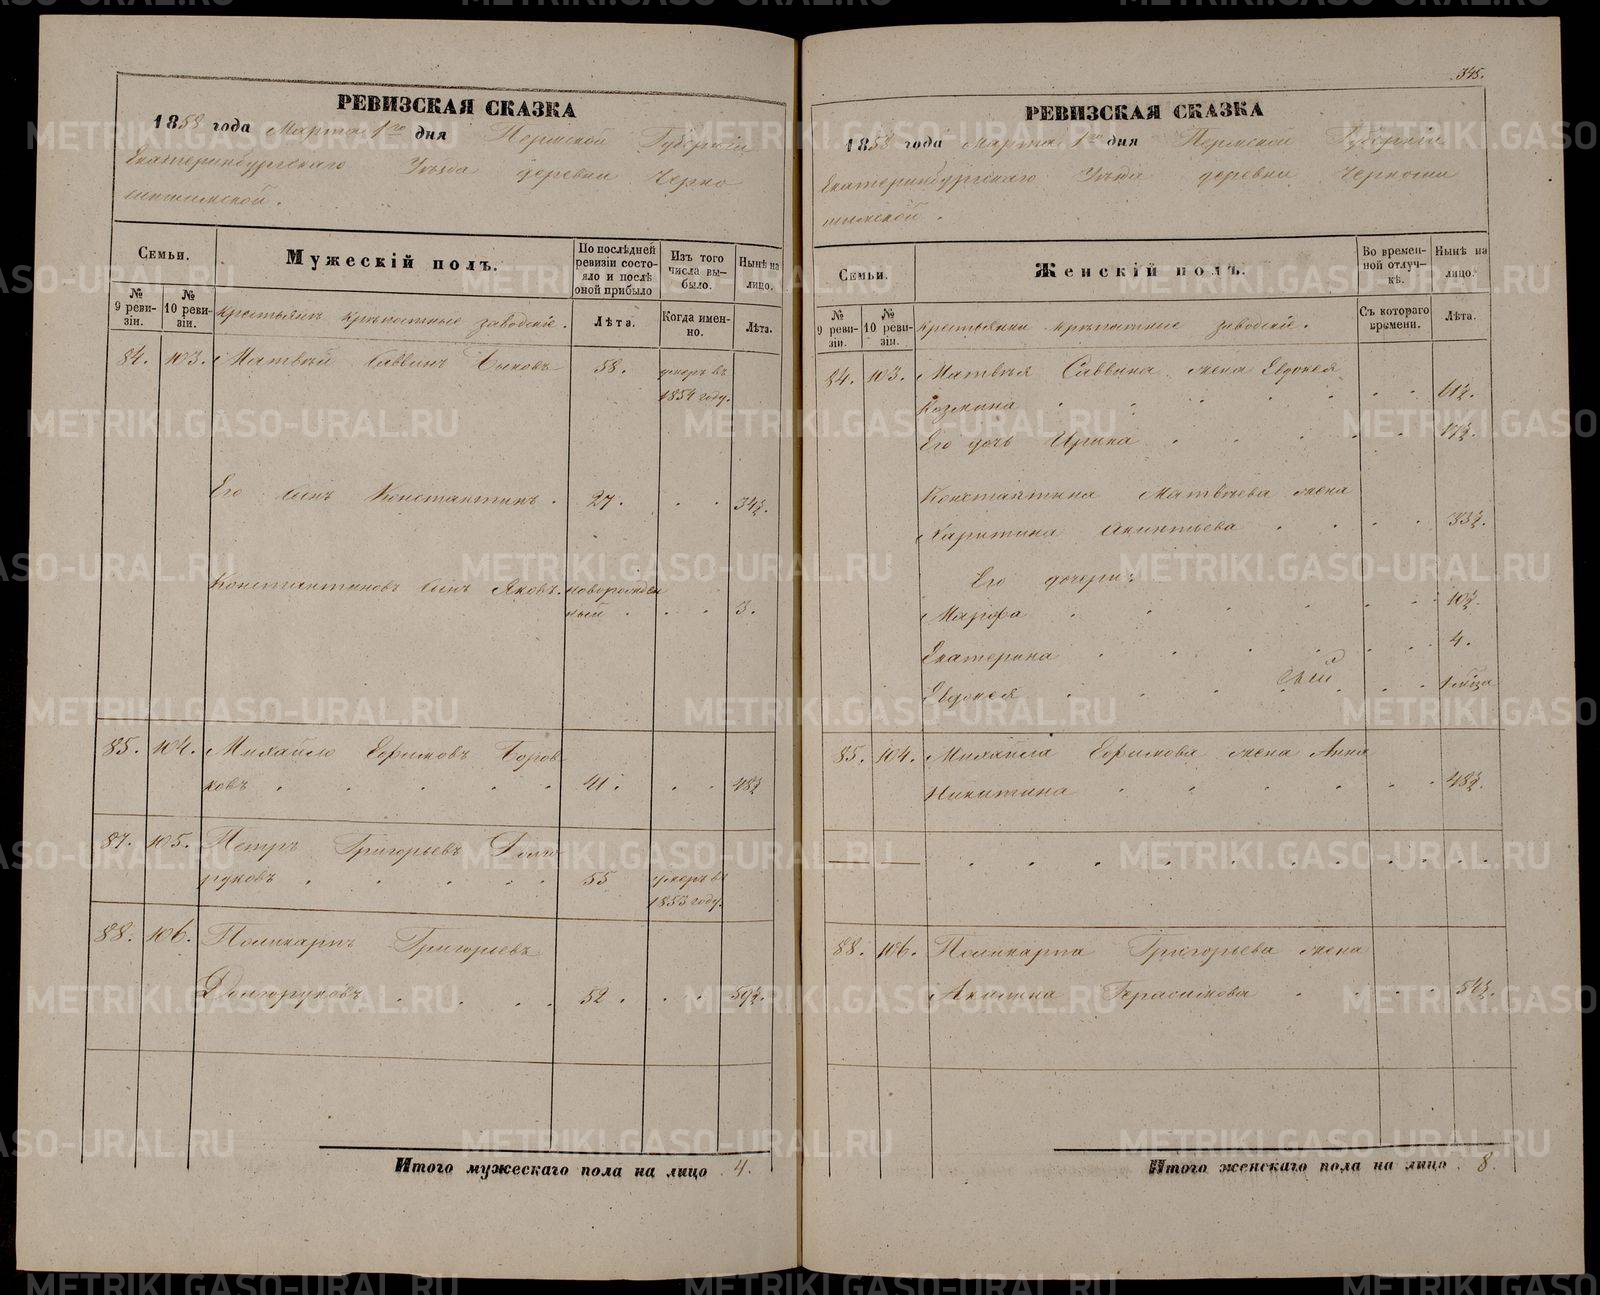 РЕВИЗСКАЯ СКАЗКА
1858 года Марта 1го дня Пермской Губерніи
Екатеринбургскаго Уѣзда деревни Черно
шишимской.
Семьи.
Мужескій полъ.
По послѣдней ревизіи состояло и послѣ оной прибыло
Изъ того числа выбыло.
Нынѣ на лицо.
№ 9 ревизіи.
№ 10 ревизіи.
Крестьянъ крѣпостные заводскіе.
Лѣта.
Когда именно.
Лѣта.
84. 103. Матвѣй Саввинъ Быковъ 58. умеръ въ
1854 году.
Его сынъ Константинъ . 27. . . 34½.
Константиновъ сынъ Яковъ. новорожден
ный . . . 3.
85. 104. Михайло Ефимовъ Боров
ковъ . . . . . 41. . . 48½
87. 105. Петръ Григорьевъ Долго
руковъ . . . . . 55 умеръ въ
1853 году.
88. 106. Поликарпъ Григорьевъ
Долгоруковъ . . . . 52 . . . 59½.
Итого мужескаго пола на лицо 4.
345.
РЕВИЗСКАЯ СКАЗКА
1858 года марта 1го дня Пермской Губерніи
Екатеринбургскаго Уѣзда деревни Черноши
шимской.
Семьи.
Женскій полъ.
Во временной отлучкѣ.
Нынѣ на лицо.
№ 9 ревизіи.
№ 10 ревизіи.
Крестьянки крѣпостные заводскіе.
Съ котораго времени.
Лѣта.
84. 103. Матвѣя Саввина жена Евдокея
Козмина . . . . . . . 61½.
Его дочь Ирина . . . . . 17½.
Константина Матвѣева жена
Харитина Акинтьева . . . . 33½.
Его дочери:
Марфа . . . . . . . 10½.
Екатерина . . . . . . . 4.
Евдокея . . . . . . 1 мѣсца
85. 104. Михайла Ефимова жена Анна
Никитина . . . . . . 48½.
88. 106. Поликарпа Григорьева жена
Акилина Герасимова . . . . 54½.
Итого женскаго пола на лицо 8.